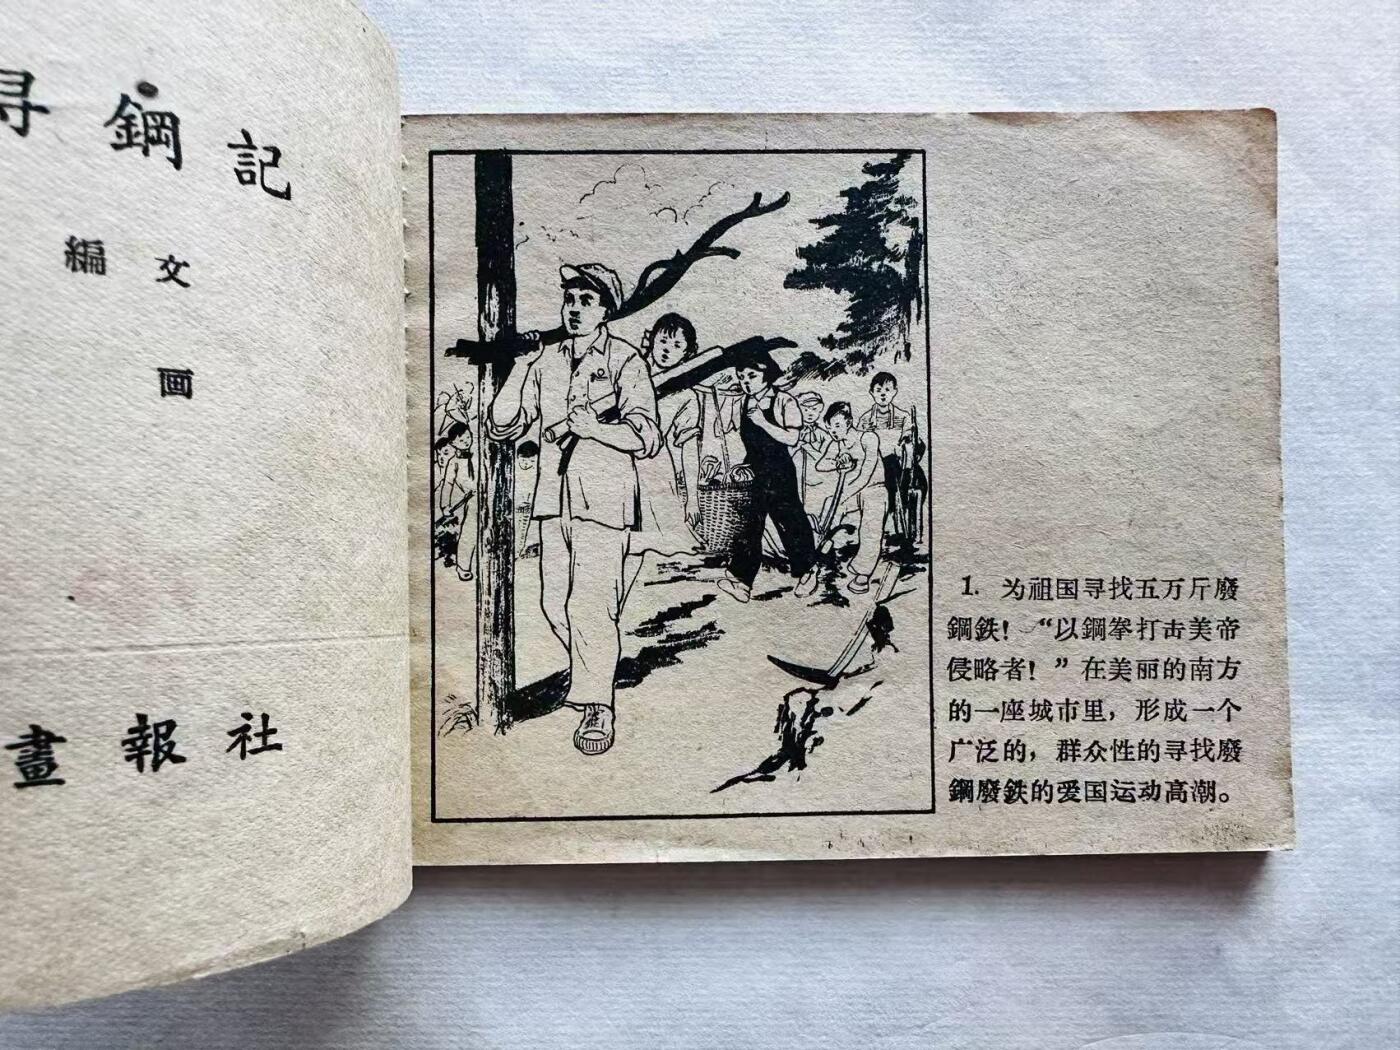 寻鋼記
編文
画
畫報社
1. 为祖国寻找五万斤廢
鋼鉄！“以鋼拳打击美帝
侵略者！”在美丽的南方
的一座城市里，形成一个
广泛的，群众性的寻找廢
鋼廢鉄的爱国运动高潮。